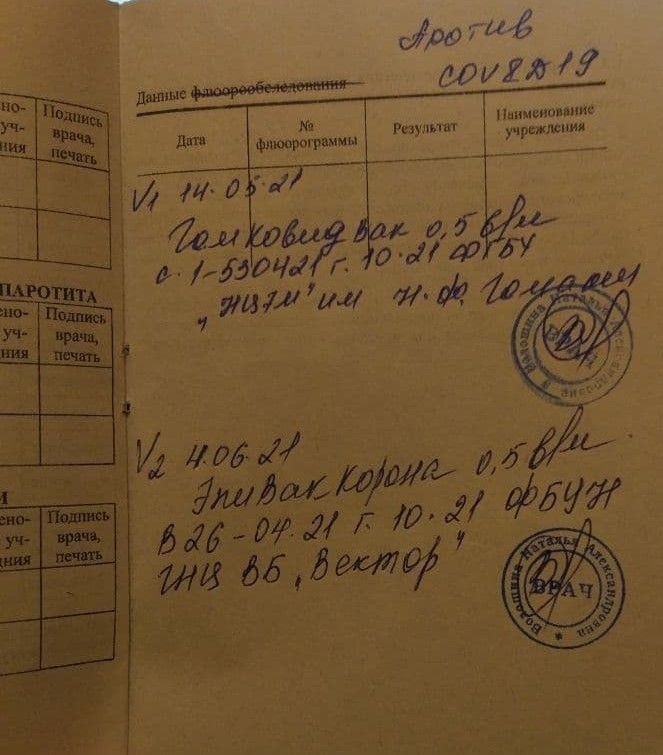 Против
COVID19
Данные флюорообследования
Дата
№ флюорограммы
Результат
Наименование учреждения
V1 14.05.21
Гамковидвак 0,5 в/м
с. 1-530421 г. 10.21 ФГБУ
"НЦЭМ" им Н.Ф. Гамалеи
Волошина Наталья Александровна
ВРАЧ
V2 4.06.21
ЭпиВакКорона 0,5 в/м
В26-04.21 г. 10.21 ФБУН
ГНЦ ВБ "Вектор"
Волошина Наталья Александровна
ВРАЧ
но-
уч-
ния
Подпись
врача,
печать
ПАРОТИТА
ено-
уч-
ния
Подпись
врача,
печать
И
ено-
уч-
дния
Подпись
врача,
печать